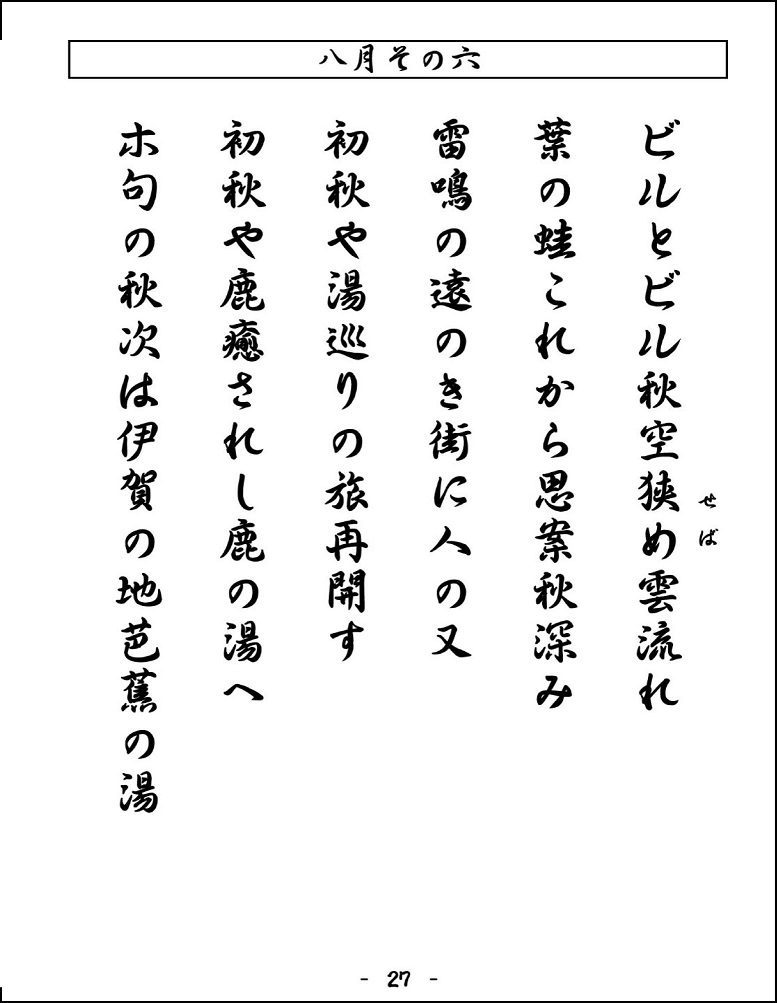 八月その六
ビルとビル秋空狭め雲流れ
せば
葉の蛙これから思案秋深み
雷鳴の遠のき街に人の又
初秋や湯巡りの旅再開す
初秋や鹿癒されし鹿の湯へ
ホ句の秋次は伊賀の地芭蕉の湯
- 27 -